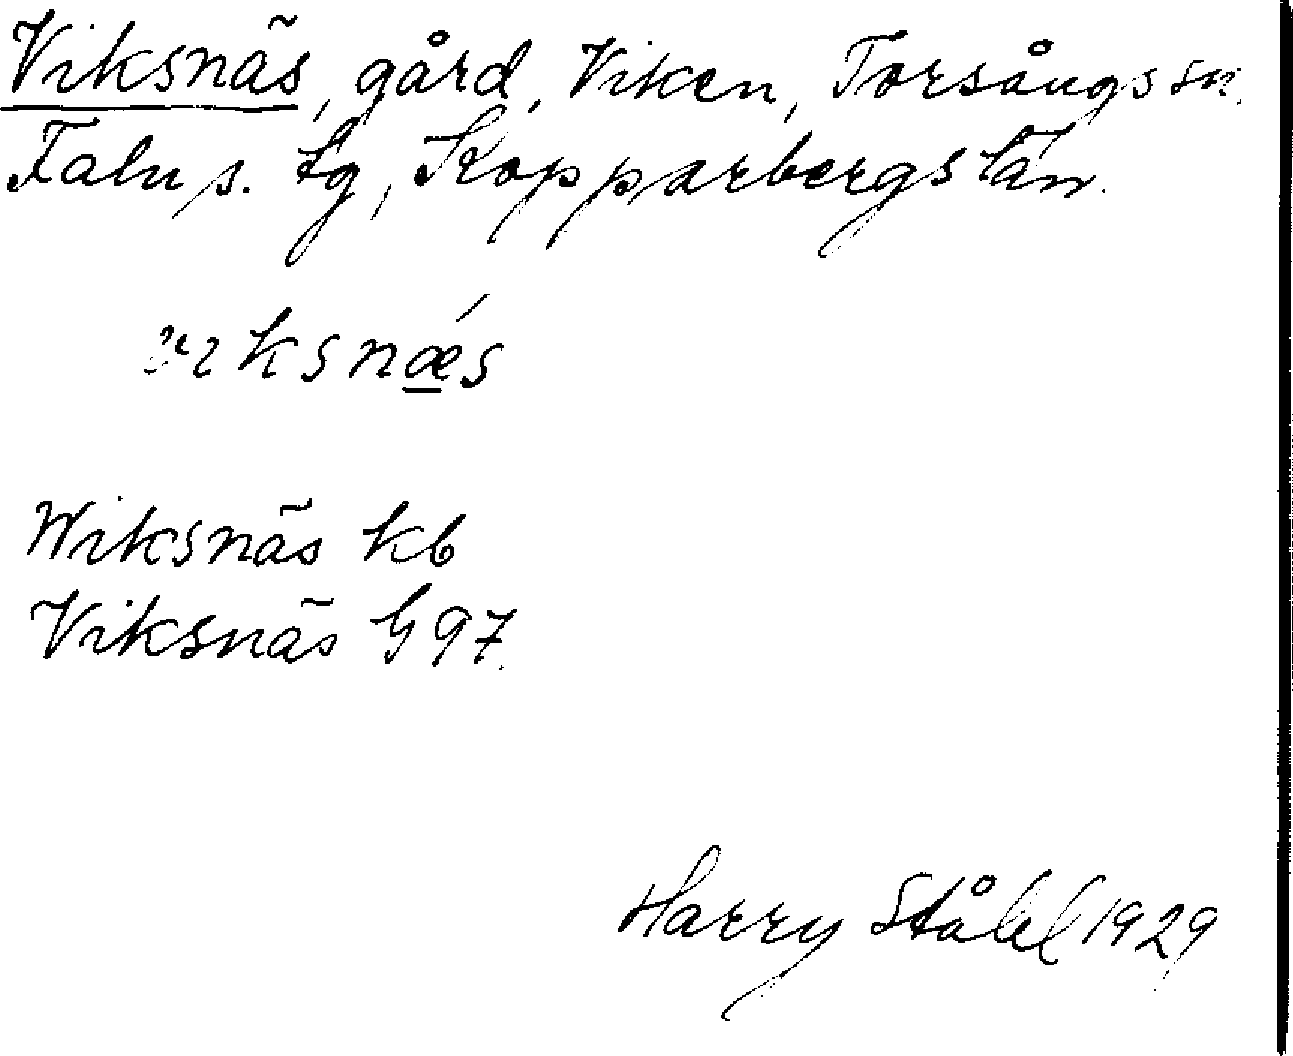 Viksnäs, gård, Viken, Torsångs sn.
Falu s. tg, Kopparbergs län.
viksnǽs
Wiksnäs kb
Viksnäs G 97.
Harry Ståhl 1929